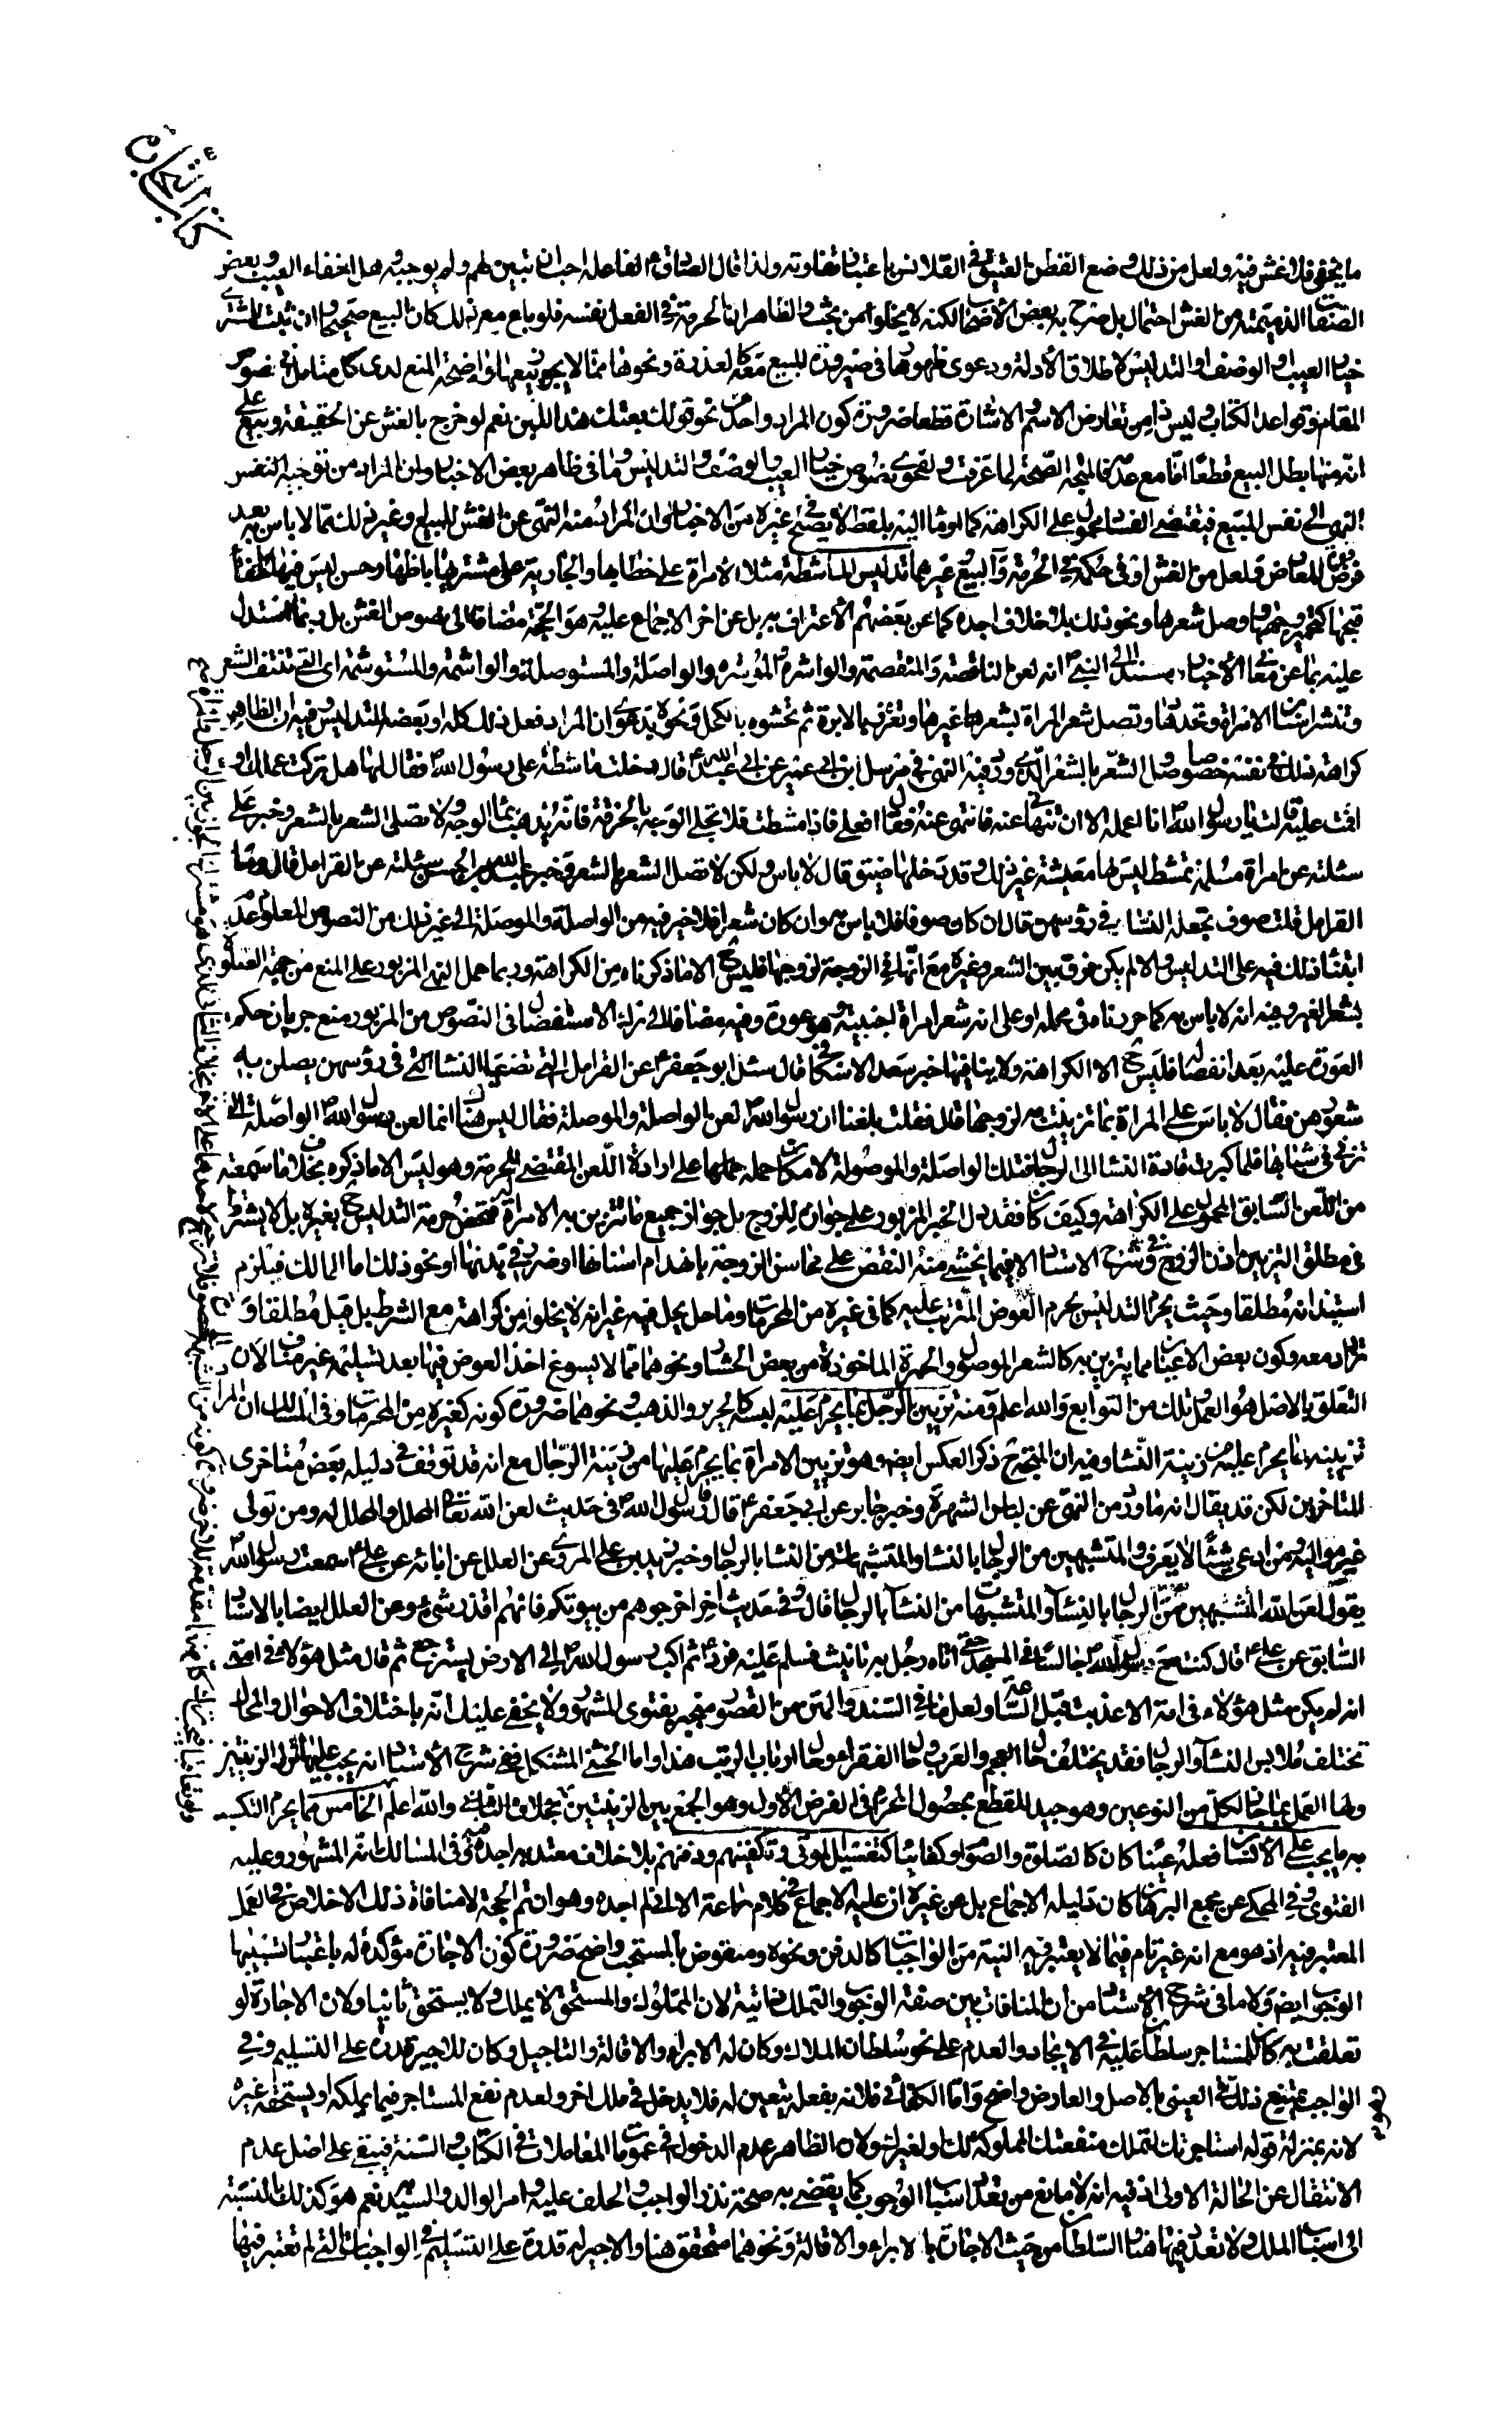 كتاب التجارة
ما يخفى فلا غش فيه ولعل من ذلك وضع القطن العتيق في القلانس باعتبار تفاوته ولذا قال الصادق ع لفاعله احب ان تبين لهم ولم يوجبه وهل اخفاء العيب وبعض
الصفات الذميمة من الغش احتمال بل صرح به بعض الاصحاب لكنه لا يخلو من بحث والظاهر ان الحرمة في الفعل نفسه فلو باع مع ذلك كان البيع صحيحا وان ثبت للمشتري
خيار العيب او الوصف او التدليس لاطلاق الادلة ودعوى ظهورها في صيرورة المبيع معه كالعذرة ونحوها مما لا يجوز بيعها واضحة المنع لدى كل متامل في نصوص
المقام وقواعد الكتاب وليس ذا من تعارض الاسم والاشارة قطعا ضرورة كون المراد واحدا من نحو قولك بعتك هذا اللبن نعم لو خرج بالغش عن الحقيقة وبيع على
انه منها بطل البيع قطعا اما مع عدمه فالمتجه الصحة لما عرفت ولفحوى نصوص خيار العيب والوصف والتدليس وما في ظاهر بعض الاخبار وان المراد من توجيه النفس
النهي الى نفس المبيع فيقتضي الفساد محمول على الكراهة كما اومأ اليه بلفظ لا يصلح في غيره من الاخبار او ان المراد منه النهي عن الغش للمبيع وغير ذلك مما لا باس به بعد
فرض المعارض ولعل من الغش او في حكمه في الحرمة والبيع غيرهما تدليس الماشطة مثلا الامراة على خطابها والجارية على مشتريها باظهار حسن ليس فيها واخفاء
قبحها كتحمير وجهها ووصل شعرها ونحو ذلك بلا خلاف اجده كما عن بعضهم الاعتراف به بل عن اخر الاجماع عليه وهو الحجة مضافا الى نصوص الغش بل ربما استدل
عليه بما عن معاني الاخبار بسنده الى النبي ص انه لعن النامصة والمنتمصة والواشرة والموتشره والواصلة والمستوصلة والواشمة والمستوشمة اي التي تنتف الشعر
وتنشر اسنان الامراة وتحددها وتصل شعر المراة بشعر امراة غيرها وتغرزها بالابرة ثم تحشوه بالكحل ونحوه بدعوى ان المراد فعل ذلك كله او بعضه للتدليس وفيه ان الظاهر
كراهة ذلك في نفسه خصوصا وصل الشعر بالشعر الذي ورد فيه النهي في مرسل ابن ابي عمير عن ابي عبد الله ع قال دخلت ماشطة على رسول الله ص فقال لها هل تركت عملك او
اقمت عليه قالت يا رسول الله ص انا اعمله الا ان تنهاني عنه فانتهى عنه فقال افعلي فاذا مشطت فلا تجلي الوجه بالخرقة فانه يذهب بماء الوجه ولا تصلي الشعر بالشعر وخبر علي
سئلته عن امراة مسلمة تمشط العرائس ليس لها معيشة غير ذلك وقد دخلها ضيق قال لا باس ولكن لا تصل الشعر بالشعر وخبر عبد الله بن الحسن سئلته عن القرامل قال وما
القرامل قلت صوف تجعله النساء في رؤسهن قال ان كان صوفا فلا باس به وان كان شعرا فلا خير فيه من الواصلة والموصلة الى غير ذلك من النصوص المعلوم عدم
ابتناء ذلك فيه على التدليس والا لم يكن فرق بين الشعر وغيره مع انها في الزوجة لزوجها فليس ح الا ما ذكرناه من الكراهة وربما حمل النهي المزبور على المنع من جهة الصلوة
بشعر الغير وفيه انه لا باس به كما حررناه في محله او على انه شعر امراة اجنبية وهو عورة وفيه مضافا الى ترك الاستفصال في النصوص من المزبور منع جريان حكم
العورة عليه بعد انفصاله فليس ح الا الكراهة ولا ينافيها خبر سعد الاسكاف قال سئل ابو جعفر ع عن القرامل التي تضعها النساء في رؤسهن يصلن به
شعورهن فقال لا باس على المراة بما تزينت به لزوجها قال فقلت بلغنا ان رسول الله ص لعن الواصلة والموصلة فقال ليس هناك انما لعن رسول الله ص الواصلة التي
تزني في شبابها فلما كبرت قادت النساء الى الرجال فتلك الواصلة والموصولة لامكان حمله على ارادة اللعن المقتضي للحرمة وهو ليس الا ما ذكره بخلاف ما سمعته
من اللعن السابق المحمول على الكراهة وكيف كان فقد دل الخبر المزبور على جوازه للزوج بل جواز جميع ما تتزين به الامراة له فتختص حرمة التدليس ح بغيره بل لا يشترط
في مطلق التزين اذن الزوج وفي شرح الاستاد الا فيما يخشى منه النقض على محاسن الزوجة بانهدام اسنانها او ضرر في بدنها او نحو ذلك اما المالك فيلزم
استيذانه مطلقا وحيث يحرم التدليس يحرم العوض المترتب عليه كما في غيره من المحرمات وما حل يحل فيه غير انه لا يخلو من كراهة مع الشرط بل قيل مطلقا و
معه وكون بعض الاعيان مما يتزين به كالشعر الموصول والحمرة الماخوذة من بعض الحشار ونحوهما مما لا يسوغ اخذ العوض فيها بعد تسليمه غير مناف لان
التعلق بالاصل هو العمل وتلك من التوابع والله اعلم ومنه تزيين الرجل بما يحرم عليه لبسه كالحرير والذهب ونحوهما ضرورة كونه كغيره من المحرمات وفي المسالك ان المراد
تزيينه بما يحرم عليه من زينة النساء وفيه ان المتجه ح ذكر العكس ايضا وهو تزيين الامراة بما يحرم عليها من زينة الرجال مع انه قد توقف في دليله بعض متاخري
المتاخرين لكن قد يقال انه ما ورد من النهي عن لباس الشهرة وخبر جابر عن ابي جعفر ع قال قال رسول الله ص في حديث لعن الله تعالى المحلل والمحلل له ومن تولى
غير مواليه ومن ادعى نسبا لا يعرف والمتشبهين من الرجال بالنساء والمتشبهات من النساء بالرجال وخبر زيد بن علي المروي عن العلل عن ابائه عن علي ع سمعت رسول الله ص
يقول لعن الله المتشبهين من الرجال بالنساء والمتشبهات من النساء بالرجال قال وفي حديث اخر اخرجوهم من بيوتكم فانهم اقذر شيء وعن العلل ايضا بالاسناد
السابق عن علي ع قال كنت مع رسول الله ص جالسا في المسجد حتى اتاه رجل به تانيث فسلم عليه فرد ع ثم اكب رسول الله ص الى الارض يسترجع ثم قال مثل هؤلاء في امتي
انه لم يكن مثل هؤلاء في امة الا عذبت قبل الساعة ولعل ما في السند والمتن من القصور منجبر بفتوى المشهور ولا يخفى عليك انه باختلاف الاحوال والمحال
تختلف ملابس النساء والرجال فقد يختلف حال العجم والعرب وحال الفقراء وحال ارباب الرتب هذا واما الخنثى المشكل ففي شرح الاستاد انه يجب عليها ترك الزينتين
ولها العمل بما جاز لكل من النوعين وهو جيد للقطع بحصول المحرم في الفرض الاول وهو الجمع بين الزينتين بخلاف الثاني والله اعلم الخامس مما يحرم التكسب
به ما يجب على الانسان فعله عينا كان كالصلوة والصوم او كفائيا كتغسيل الموتى وتكفينهم ودفنهم بلا خلاف معتد به اجده في المسالك انه المشهور وعليه
الفتوى وفي المحكي عن مجمع البرهان كان دليله الاجماع بل عن غيره ان عليه الاجماع في كلام جماعة الا اني لم اجده وهو ان تم الحجة لا منافاة ذلك الاخلاص في العمل
المعتبر فيه اذ هو مع انه غير تام فيما لا يعتبر فيه النية من الواجبات كالدفن ونحوه ومنقوض بالمستحب واضح ضرورة كون الاجارة مؤكدة له باعتبار تسبيبها
الوجوب ايضا ولا ما في شرح الاستاد من ان المنافات بين صفة الوجوب والتملك ذاتية لان المملوك والمستحق لا يملك ولا يستحق ثانيا ولان الاجارة لو
تعلقت به كان للمستاجر سلطان عليه في الايجاد والعدم على نحو سلطان الملاك وكان له الابراء والاقالة والتاجيل وكان للاجير قدرة على التسليم وفي
الواجب يمتنع ذلك في العيني بالاصل والعارض واضح واما الكفائي فلانه بفعله يتعين له فلا يدخل في ملك اخر ولعدم نفع المستاجر فيما يملكه او يستحقه غيره
لانه بمنزلة قوله استاجرتك لتملك منفعتك المملوكة لك او لغيرك ولان الظاهر عدم الدخول في عمومات المعاملات في الكتاب والسنة فيبقى على اصل عدم
الانتقال عن الحالة الاولى اذ فيه انه لا مانع من تعدد اسباب الوجوب كما يقضي به صحة نذر الواجب والحلف عليه وامر الوالد والسيد نعم هو كذلك بالنسبة
الى اسباب الملك ولا تعدد فيها هنا والسلطان من حيث الاجارة بالابراء والاقالة ونحوهما متحقق هنا والاجير له قدرة على التسليم في الواجبات التي لم تعتبر فيها